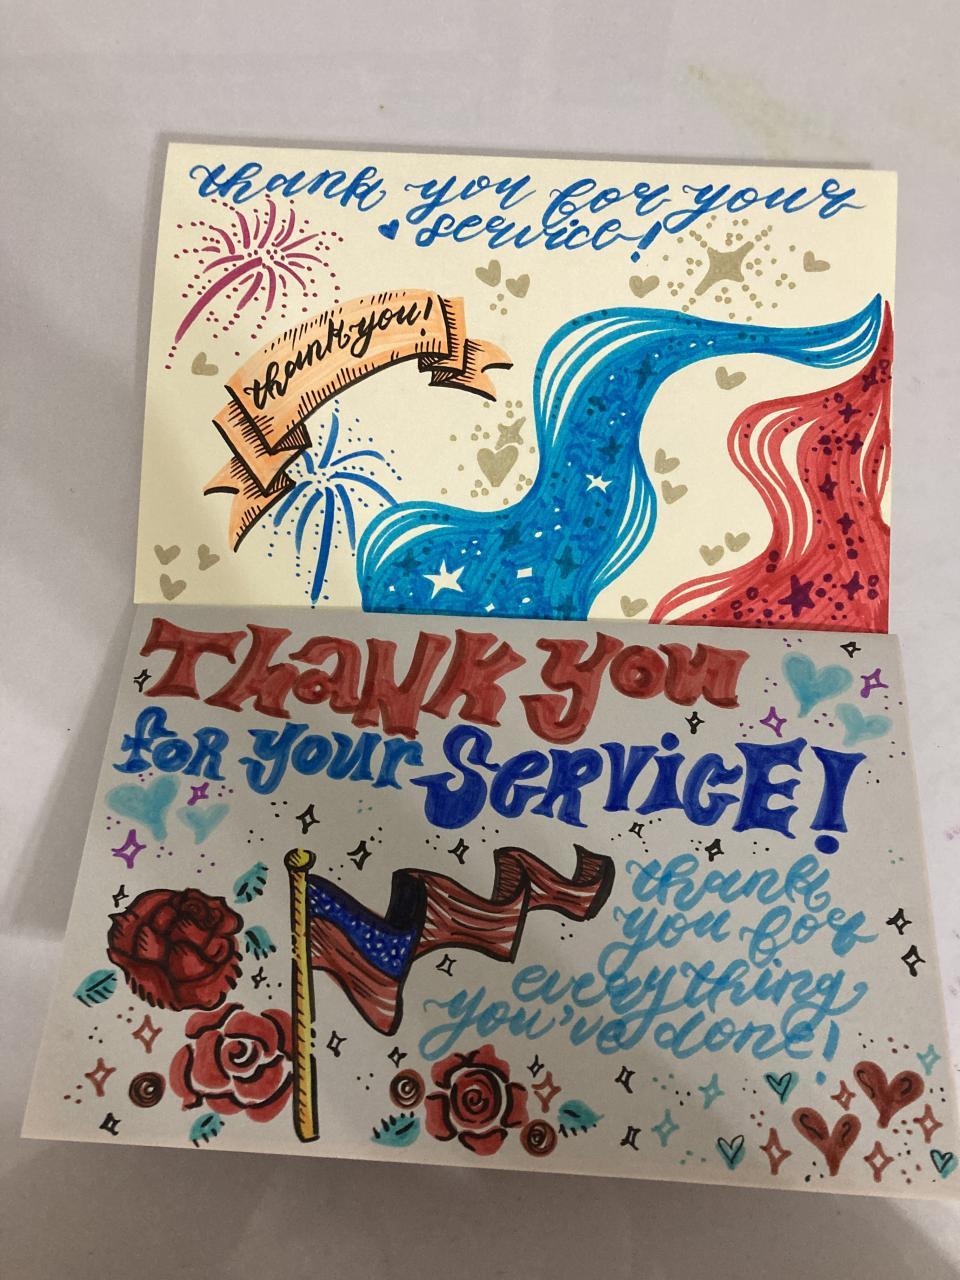 thank you for your
service!
thank you!
THANK you
for your SERVICE!
thank
you for
everything
you've done!